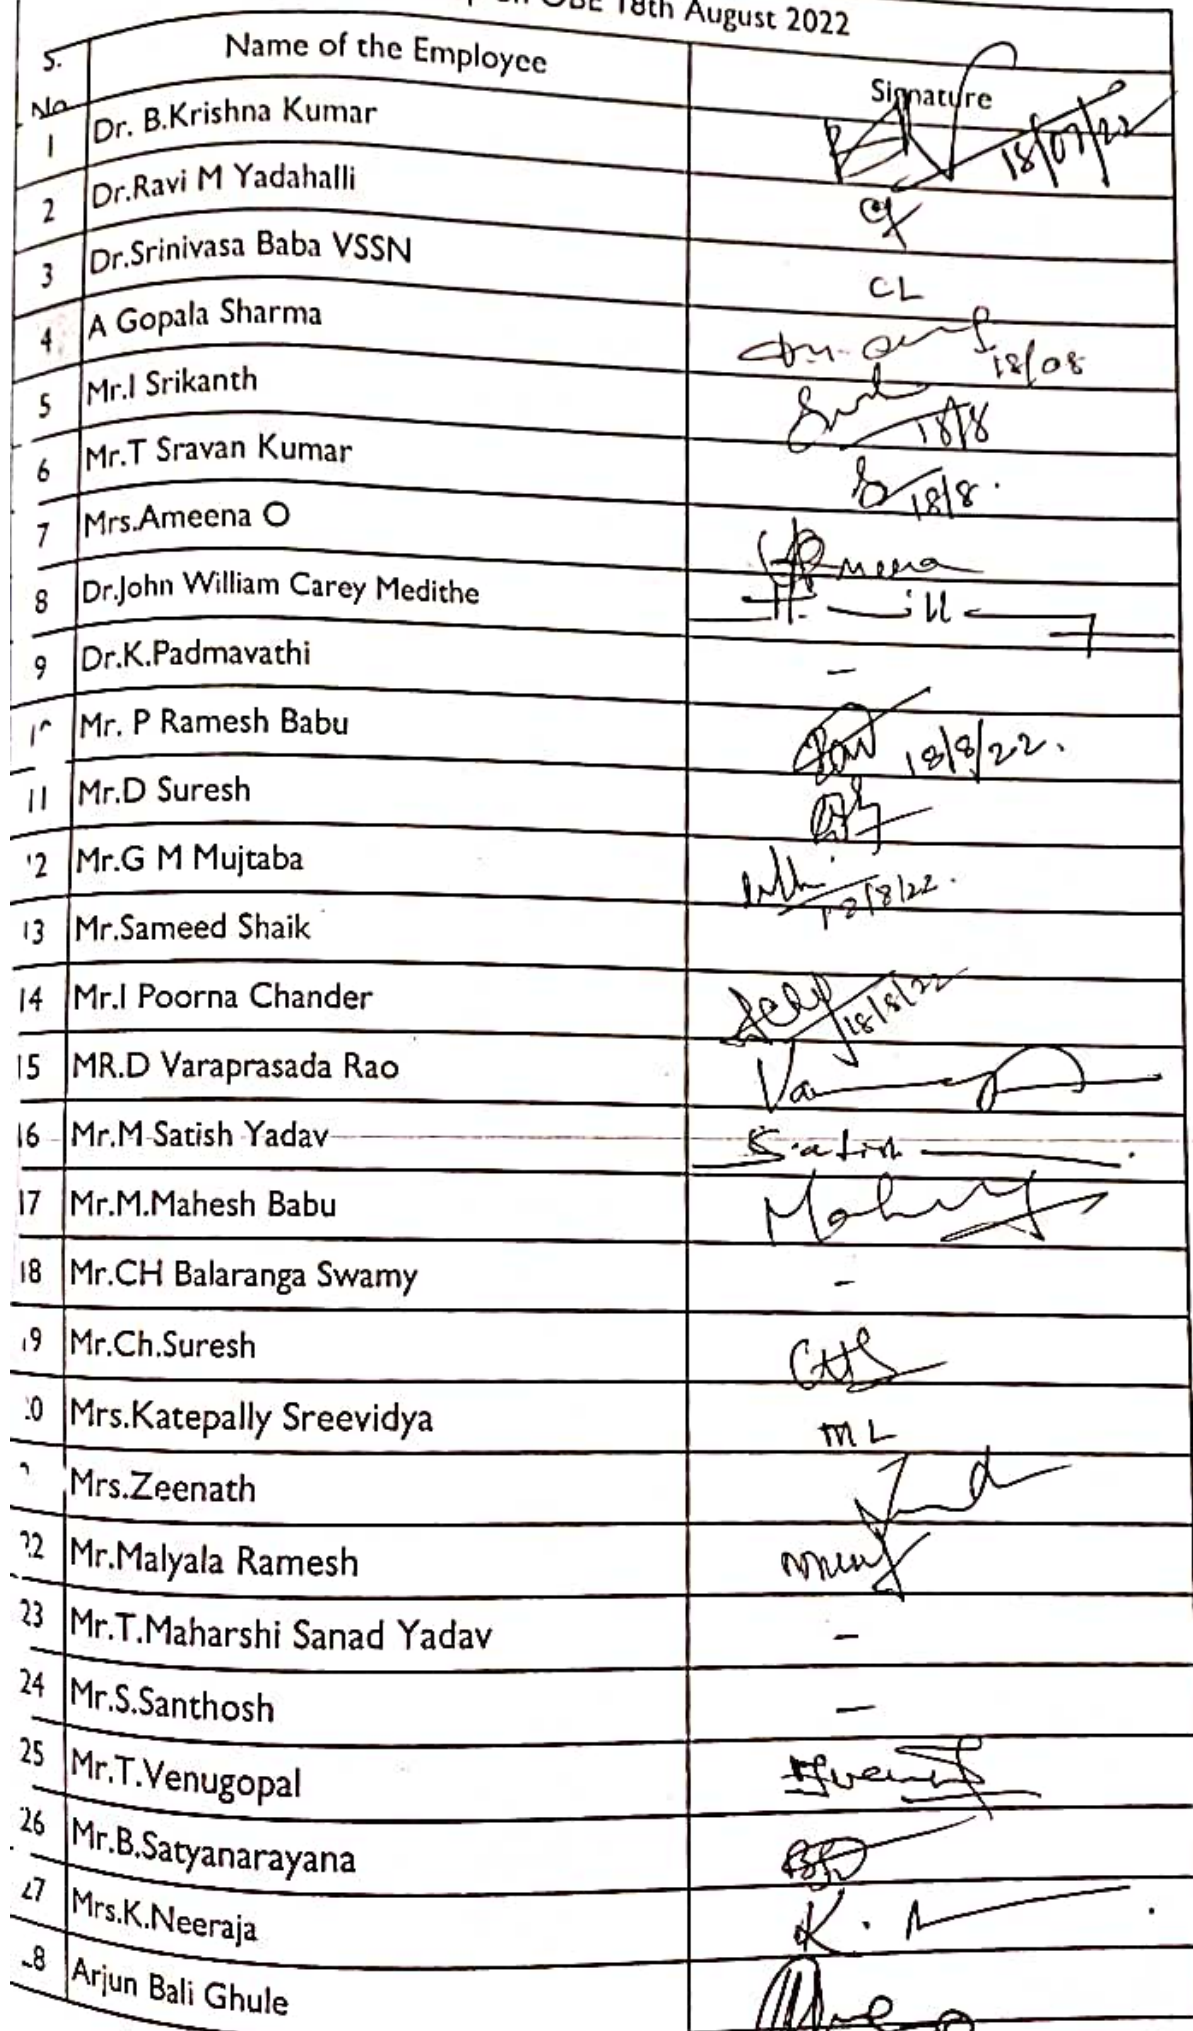 OBE 18th August 2022
S.
No Name of the Employee Signature
1 Dr. B.Krishna Kumar 18/07/22
2 Dr.Ravi M Yadahalli
3 Dr.Srinivasa Baba VSSN CL
4 A Gopala Sharma 18/08
5 Mr.I Srikanth 18/8
6 Mr.T Sravan Kumar 18/8.
7 Mrs.Ameena O Ameena
8 Dr.John William Carey Medithe
9 Dr.K.Padmavathi -
Mr. P Ramesh Babu 18/8/22.
11 Mr.D Suresh
12 Mr.G M Mujtaba 18/8/22.
13 Mr.Sameed Shaik
14 Mr.I Poorna Chander 18/8/22
15 MR.D Varaprasada Rao
16 Mr.M Satish Yadav Satish
17 Mr.M.Mahesh Babu
18 Mr.CH Balaranga Swamy -
19 Mr.Ch.Suresh
20 Mrs.Katepally Sreevidya ML
Mrs.Zeenath
22 Mr.Malyala Ramesh
23 Mr.T.Maharshi Sanad Yadav -
24 Mr.S.Santhosh -
25 Mr.T.Venugopal
26 Mr.B.Satyanarayana
27 Mrs.K.Neeraja K. N
28 Arjun Bali Ghule